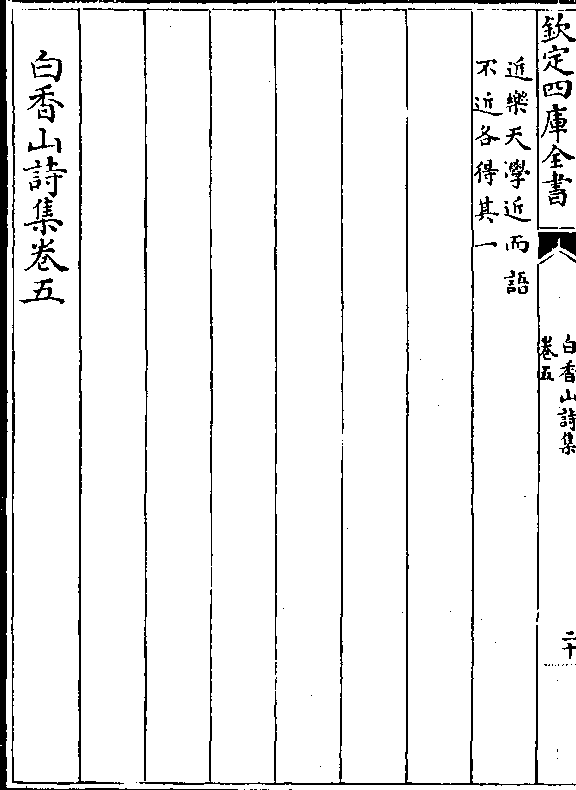 欽定四庫全書
白香山詩集
卷五
二十
近樂天學近而語
不近各得其一
白香山詩集卷五